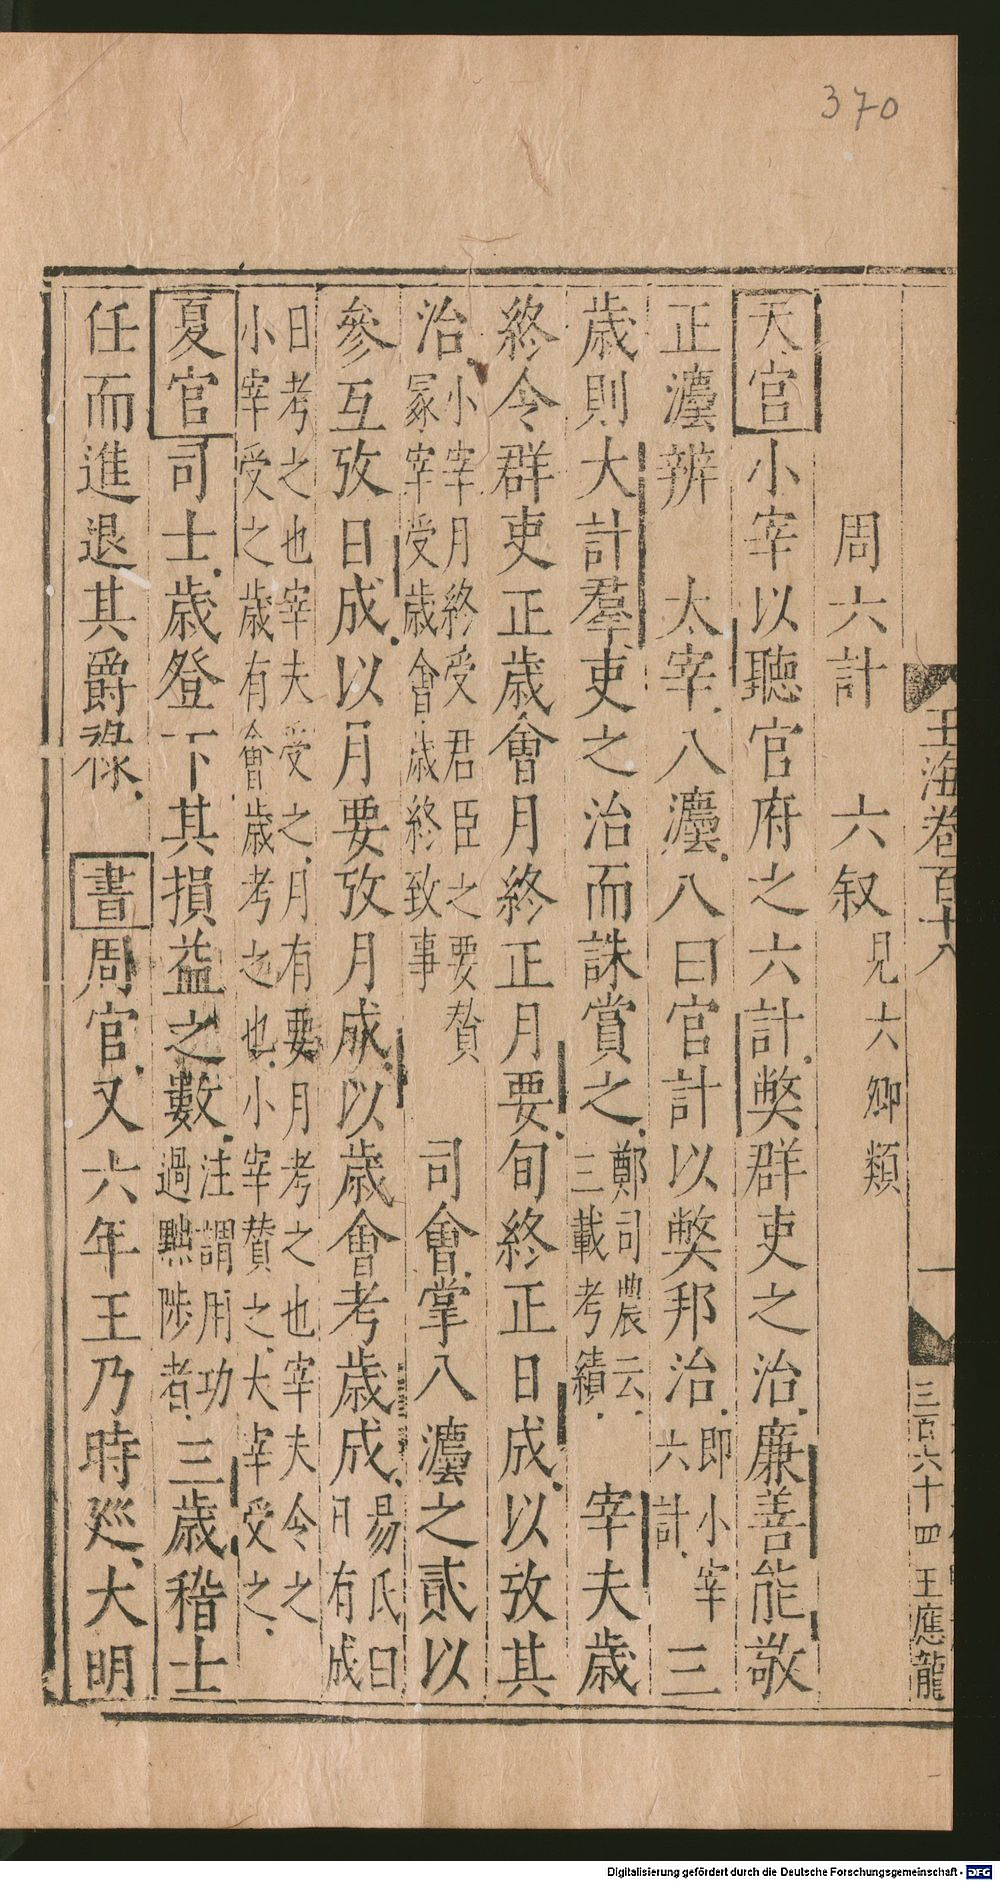 370
玉海卷百十八
一
三百六十四 王應龍
周六計 六叙見六卿類
天官小宰以聽官府之六計弊群吏之治廉善能敬
正灋辨 太宰八灋八曰官計以弊邦治即小宰六計三
歲則大計羣吏之治而誅賞之鄭司農云三載考績 宰夫歲
終令群吏正歲會月終正月要旬終正日成以攷其
治小宰月終受君臣之要贊冢宰受歲會歲終致事 司會掌八灋之貳以
參互攷日成以月要攷月成以歲會考歲成易氏曰日有成
日考之也宰夫受之月有要月考之也宰夫令之
小宰受之歲有會歲考之也小宰贊之大宰受之
夏官司士歲登下其損益之數注謂用功過黜陟者三歲稽士
任而進退其爵祿 書周官又六年王乃時廵大明
Digitalisierung gefördert durch die Deutsche Forschungsgemeinschaft - DFG